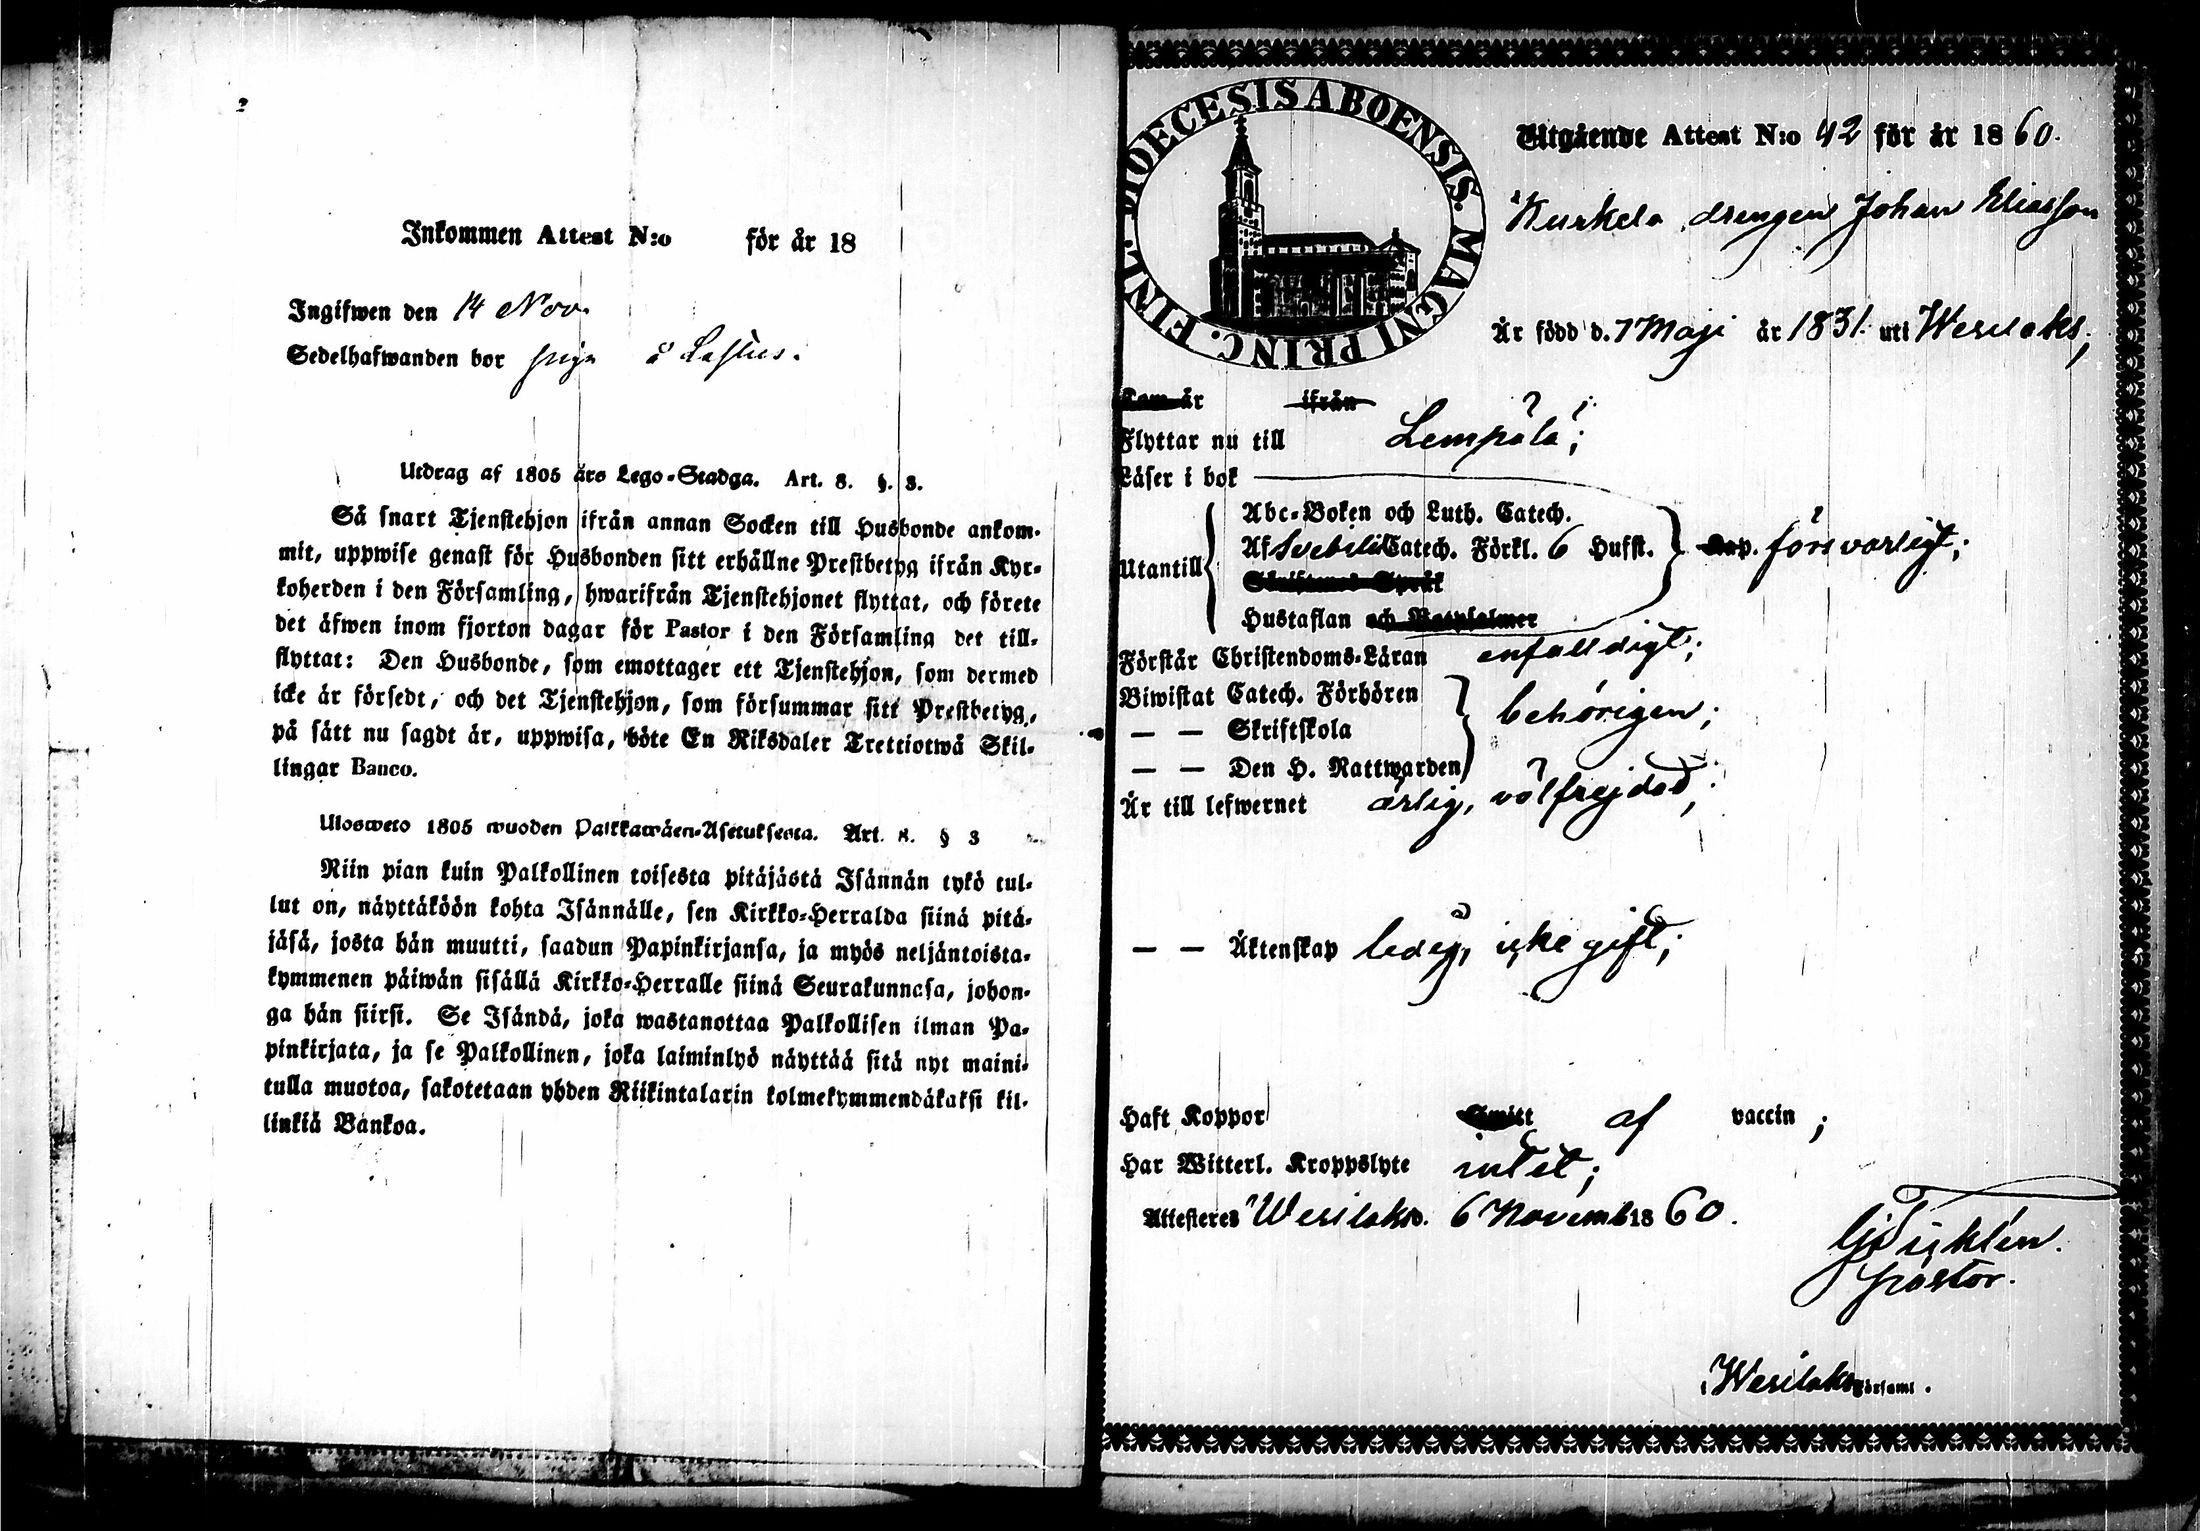 Inkommen Attest N:o för år 18
Ingifwen den 14 Nov.
Sedelhafwanden bor å
Utdrag af 1805 års Lego-Stadga. Art. 8. §. 3.
Så snart Tjenstehjon ifrån annan Socken till Husbonde ankom-
mit, uppwise genast för Husbonden sitt erhållne Prestbetyg ifrån Kyr-
koherden i den Församling, hwarifrån Tjenstehjonet flyttat, och förete
det äfwen inom fjorton dagar för Pastor i den Församling det till-
flyttat: Den Husbonde, som emottager ett Tjenstehjon, som dermed
icke är försedt, och det Tjenstehjon, som försummar sitt Prestbetyg,
på sätt nu sagdt är, uppwisa, böte En Riksdaler Trettiotwå Skil-
lingar Banco.
Ulosweto 1805 wuoden Palkkawäen-Asetuksesta. Art. 8. § 3
Niin pian kuin Palkollinen toisesta pitäjästä Isännän tykö tul-
lut on, näyttäköön kohta Isännälle, sen Kirkko-Herralda siinä pitä-
jäsä, josta hän muutti, saadun Papinkirjansa, ja myös neljäntoista-
kymmenen päiwän sisällä Kirkko-Herralle siinä Seurakunnasa, johon-
ga hän siirsi. Se Isändä, joka wastanottaa Palkollisen ilman Pa-
pinkirjata, ja se Palkollinen, joka laiminlyö näyttää sitä nyt maini-
tulla muotoa, sakotetaan yhden Riikintalarin kolmekymmendäkaksi kil-
linkiä Bankoa.
FINL. DIOECESIS ABOENSIS. MAGNI PRINC.
Utgående Attest N:o 42 för år 1860.
Kurkela drengen Johan Eliasson
Är född d. 7 Maji år 1831. uti Wesilaks;
Kom år ifrån
Flyttar nu till Lempälä;
Läser i bok
Utantill
Abc-Boken och Luth. Catech.
Af Svebilii Catech. Förkl. 6 Hufst.
Skriftenes Språk
Hustaflan och Botpsalmer
Kap. försvarligt;
Förstår Christendoms-Läran enfalldigt;
Biwistat Catech. Förhören
— — Skriftskola
— — Den H. Nattwarden
behörigen;
Är till lefwernet ärlig, välfrejdad;
— — Äktenskap ledig, icke gift;
Haft Koppor Smitt af vaccin;
Har Witterl. Kroppslyte intet;
Attesteres Wesilaks d. 6 Novemb 1860.
Pastor.
i Wesilaks Församl.